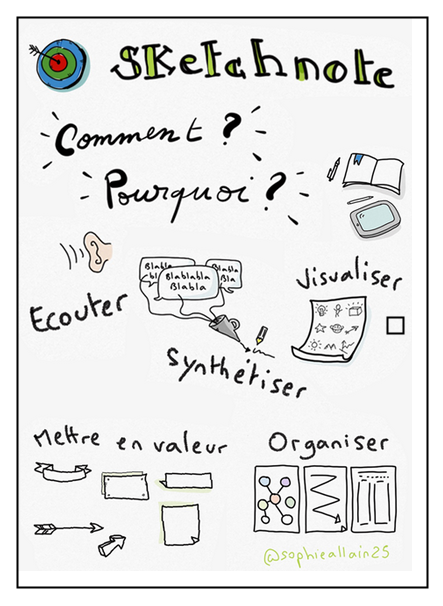 Sketchnote
Comment ?
Pourquoi ?
Ecouter
Blabla
bl
Blablabla
Blabla
Blabla
Bla
Visualiser
Synthétiser
Mettre en valeur
Organiser
@sophieallain25